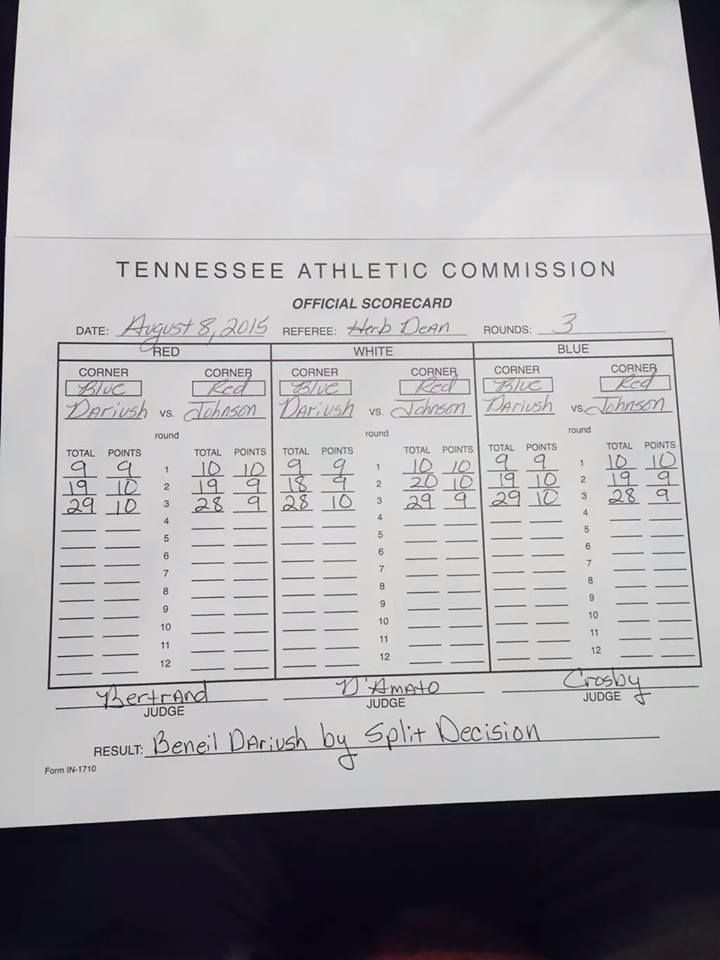 TENNESSEE ATHLETIC COMMISSION
OFFICIAL SCORECARD
DATE: August 8, 2015 REFEREE: Herb Dean ROUNDS: 3
RED WHITE BLUE
CORNER CORNER CORNER CORNER CORNER CORNER
Blue Red Blue Red Blue Red
Dariush vs. Johnson Dariush vs. Johnson Dariush vs. Johnson
round round round
TOTAL POINTS TOTAL POINTS TOTAL POINTS TOTAL POINTS TOTAL POINTS TOTAL POINTS
9 9 1 10 10 9 9 1 10 10 9 9 1 10 10
19 10 2 19 9 18 9 2 20 10 19 10 2 19 9
29 10 3 28 9 28 10 3 29 9 29 10 3 28 9
4 4 4
5 5 5
6 6 6
7 7 7
8 8 8
9 9 9
10 10 10
11 11 11
12 12 12
Bertrand D'Amato Crosby
JUDGE JUDGE JUDGE
RESULT: Beneil Dariush by Split Decision
Form IN-1710